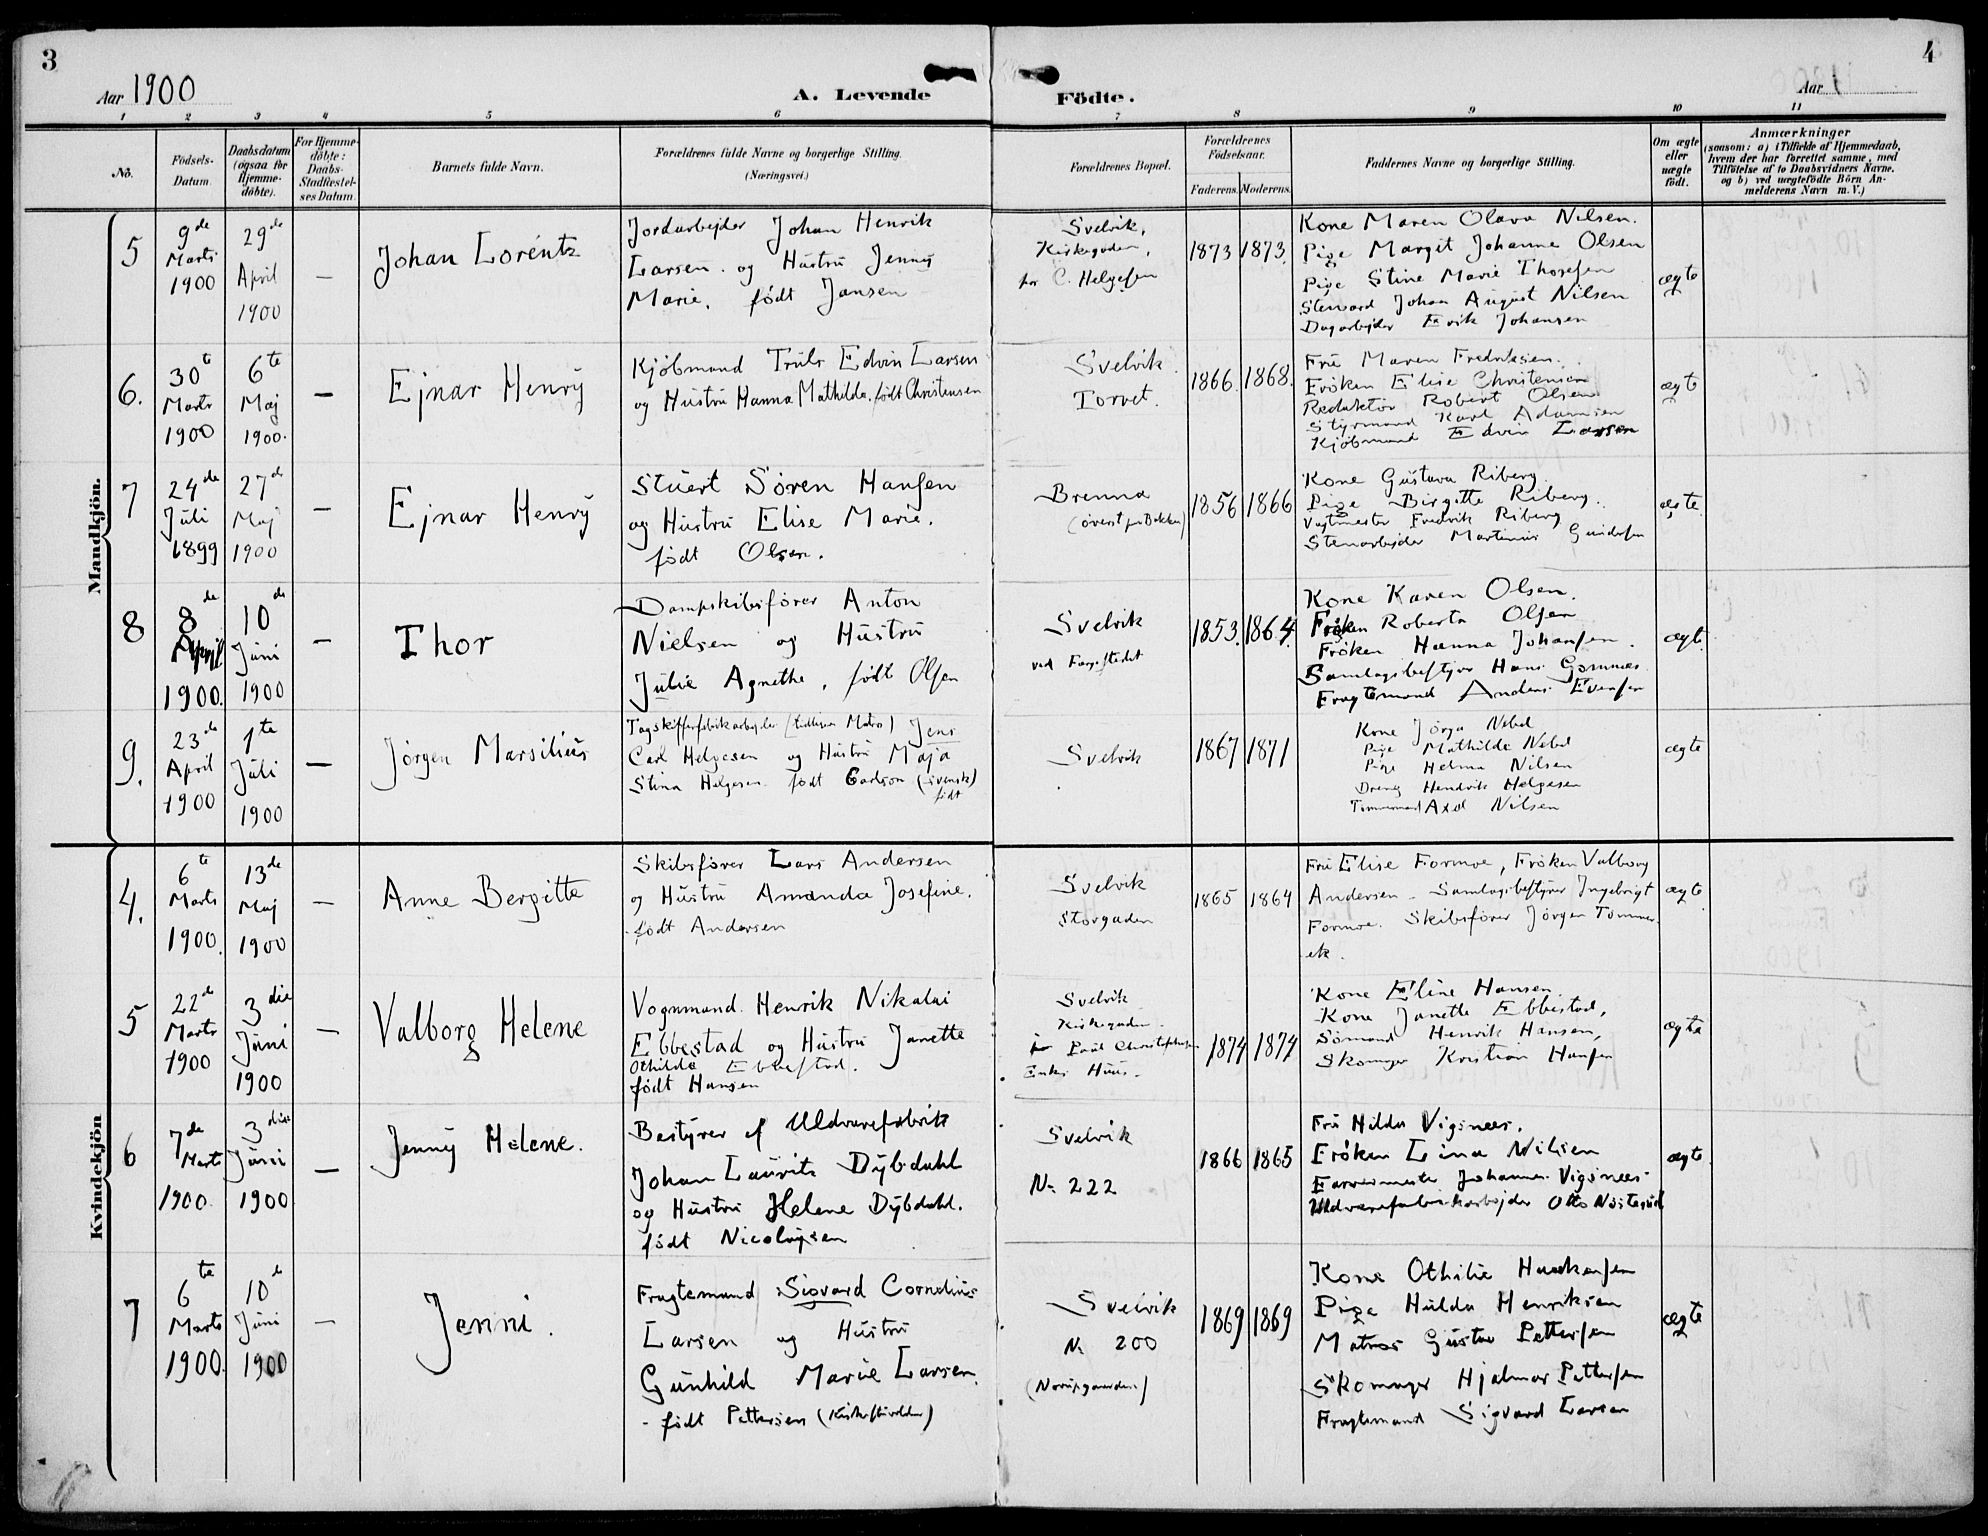 3
4
Aar 1900
A. Levende
Födte.
Aar 1
1 2 3 4 5 6 7 8 9 10 11
No.
Födsels-Datum.
Daabsdatum (ogsaa for Hjemme-döbte).
For Hjemme-döbte: Daabs-Stadfæstel-ses Datum.
Barnets fulde Navn.
Forældrenes fulde Navne og borgerlige Stilling. (Næringsvei.)
Forældrenes Bopæl.
Forældrenes Födselsaar.
Faderens. Moderens.
Faddernes Navne og borgerlige Stilling.
Om ægte eller uægte födt.
Anmærkninger
(saasom: a) i Tilfælde af Hjemmedaab,
hvem der har forrettet samme, med
Tilföielse af to Daabsvidners Navne,
og b) ved uægtefödte Börn An-
melderens Navn m. V.)
Mandkjön.
5
9de Marts 1900
29de April 1900
—
Johan Lorentz
Jordarbejder Johan Henrik
Larsen og Hustru Jenny
Marie, født Jansen
Svelvik,
Kirkegaden,
hos C. Helgesen
1873 1873.
Kone Maren Olava Nilsen.
Pige Margit Johanne Olsen
Pige Stine Marie Thorsen
Steward Johan August Nilsen
Dagarbejder Erik Johansen
ægte
6.
30te Marts 1900
6te Maj 1900.
—
Ejnar Henry
Kjøbmand Truls Edvin Larsen
og Hustru Hanna Mathilda, født Christensen
Svelvik
Torvet.
1866. 1868.
Fru Maren Fredriksen.
Frøken Elise Christensen
Redaktør Robert Olsen
Styrmand Karl Adamsen
Kjøbmand Edvin Larsen
ægte
7
24de Juli 1899
27de Maj 1900
—
Ejnar Henry
Stuert Søren Hansen
og Hustru Elise Marie.
født Olsen.
Brenna
(øverst paa Bakken)
1856 1866
Kone Gustava Riberg.
Pige Birgitte Riberg.
Vagtmester Fredrik Riberg
Stenarbejder Martinius Gundersen
ægte
8
8de April 1900.
10de Juni 1900
—
Thor
Dampskibsfører Anton
Nielsen og Hustru
Julie Agnethe, født Olsen
Svelvik
ved Færgestedet
1853. 1864.
Kone Karen Olsen.
Frøken Roberta Olsen
Frøken Hanna Johansen
Samlagsbestyrer Hans Gomnæs
Fragtemand Anders Evensen
ægte
9.
23de April 1900
1te Juli 1900
—
Jørgen Marsilius
Tagskifferfabrikarbejder (tidligere Matros) Jens
Carl Helgesen og Hustru Maja
Stina Helgesen født Carlson (svensk) født
Svelvik
1867 1871
Kone Jørga Nebel
Pige Mathilde Nebel
Pige Helma Nilsen
Dreng Hendrik Helgesen
Tømmermand Axel Nilsen
ægte
Kvindekjön
4.
6te Marts 1900.
13de Maj 1900
—
Anne Bergitte
Skibsfører Lars Andersen
og Hustru Amanda Josefine,
født Andersen
Svelvik
Storgaden
1865 1864
Fru Elise Formoe, Frøken Valborg
Andersen. Samlagsbestyrer Ingebrigt
Formoe. Skibsfører Jørgen Tommer-
ek.
ægte
5
22de Marts 1900
3die Juni 1900
—
Valborg Helene
Vognmand Henrik Nikolai
Ebbestad og Hustru Janette
Othilde Ebbestad.
født Hansen
Svelvik
Kirkegaden
i Paul Christophersen
Enkes Huus.
1874 1874
Kone Eline Hansen
Kone Janette Ebbestad,
Sømand Henrik Hansen,
Skomager Kristian Hansen
ægte
6
7de Marts 1900.
3die Juni 1900
—
Jenny Helene.
Bestyrer af Uldvarefabrik
Johan Lauritz Dybdahl
og Hustru Helene Dybdahl.
født Nicolaysen
Svelvik
No 222
1866 1865
Fru Hilda Vigsnees.
Frøken Lina Nilsen
Farvermester Johannes Vigsnees
Uldvarefabrikarbejder Otto Nøsterud
ægte
7
6te Marts 1900.
10de Juni 1900
—
Jenni.
Fragtemand Sigvard Cornelius
Larsen og Hustru
Gunhild Marie Larsen.
født Pettersen
Svelvik
No 200
(Norupgaarden)
1869 1869
Kone Othilie Haakensen
Pige Hulda Henriksen
Matros Gustav Pettersen
Skomager Hjalmar Pettersen
Fragtemand Sigvard Larsen
ægte